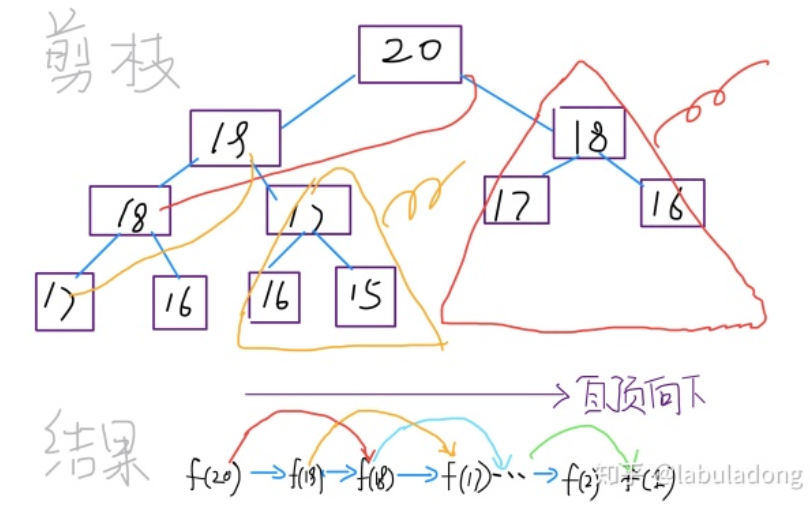 剪枝
20
19
18
18
17
17
16
17
16
16
15
自顶向下
结果
f(20) f(19) f(18) f(17) ... f(2) f(1)
知乎 @labuladong